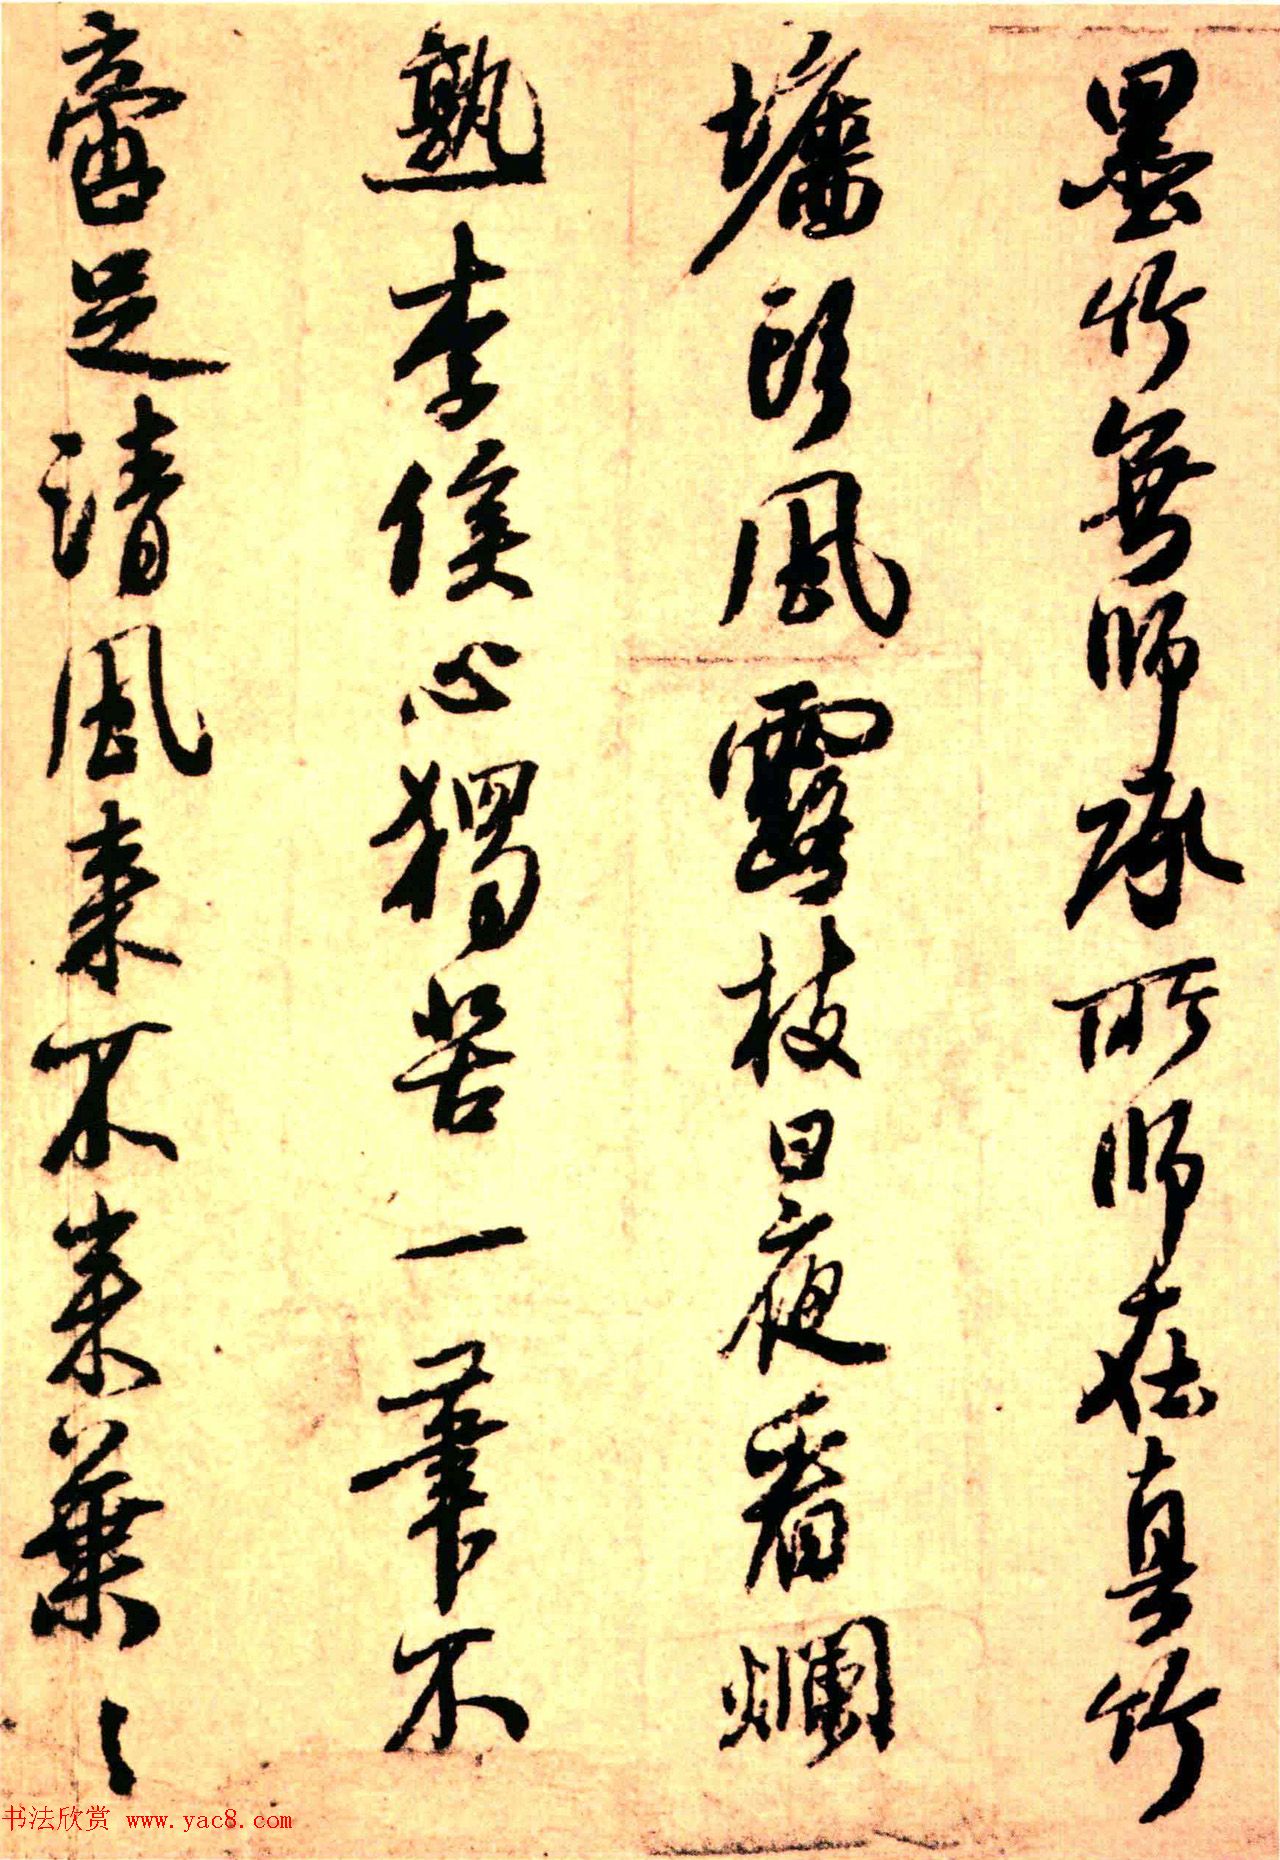 墨竹無師承所師在真竹
墻頭風露枝日夜看爛
熟李侯心獨苦一筆不
啻足清風來不來葉〻
书法欣赏 www.yac8.com